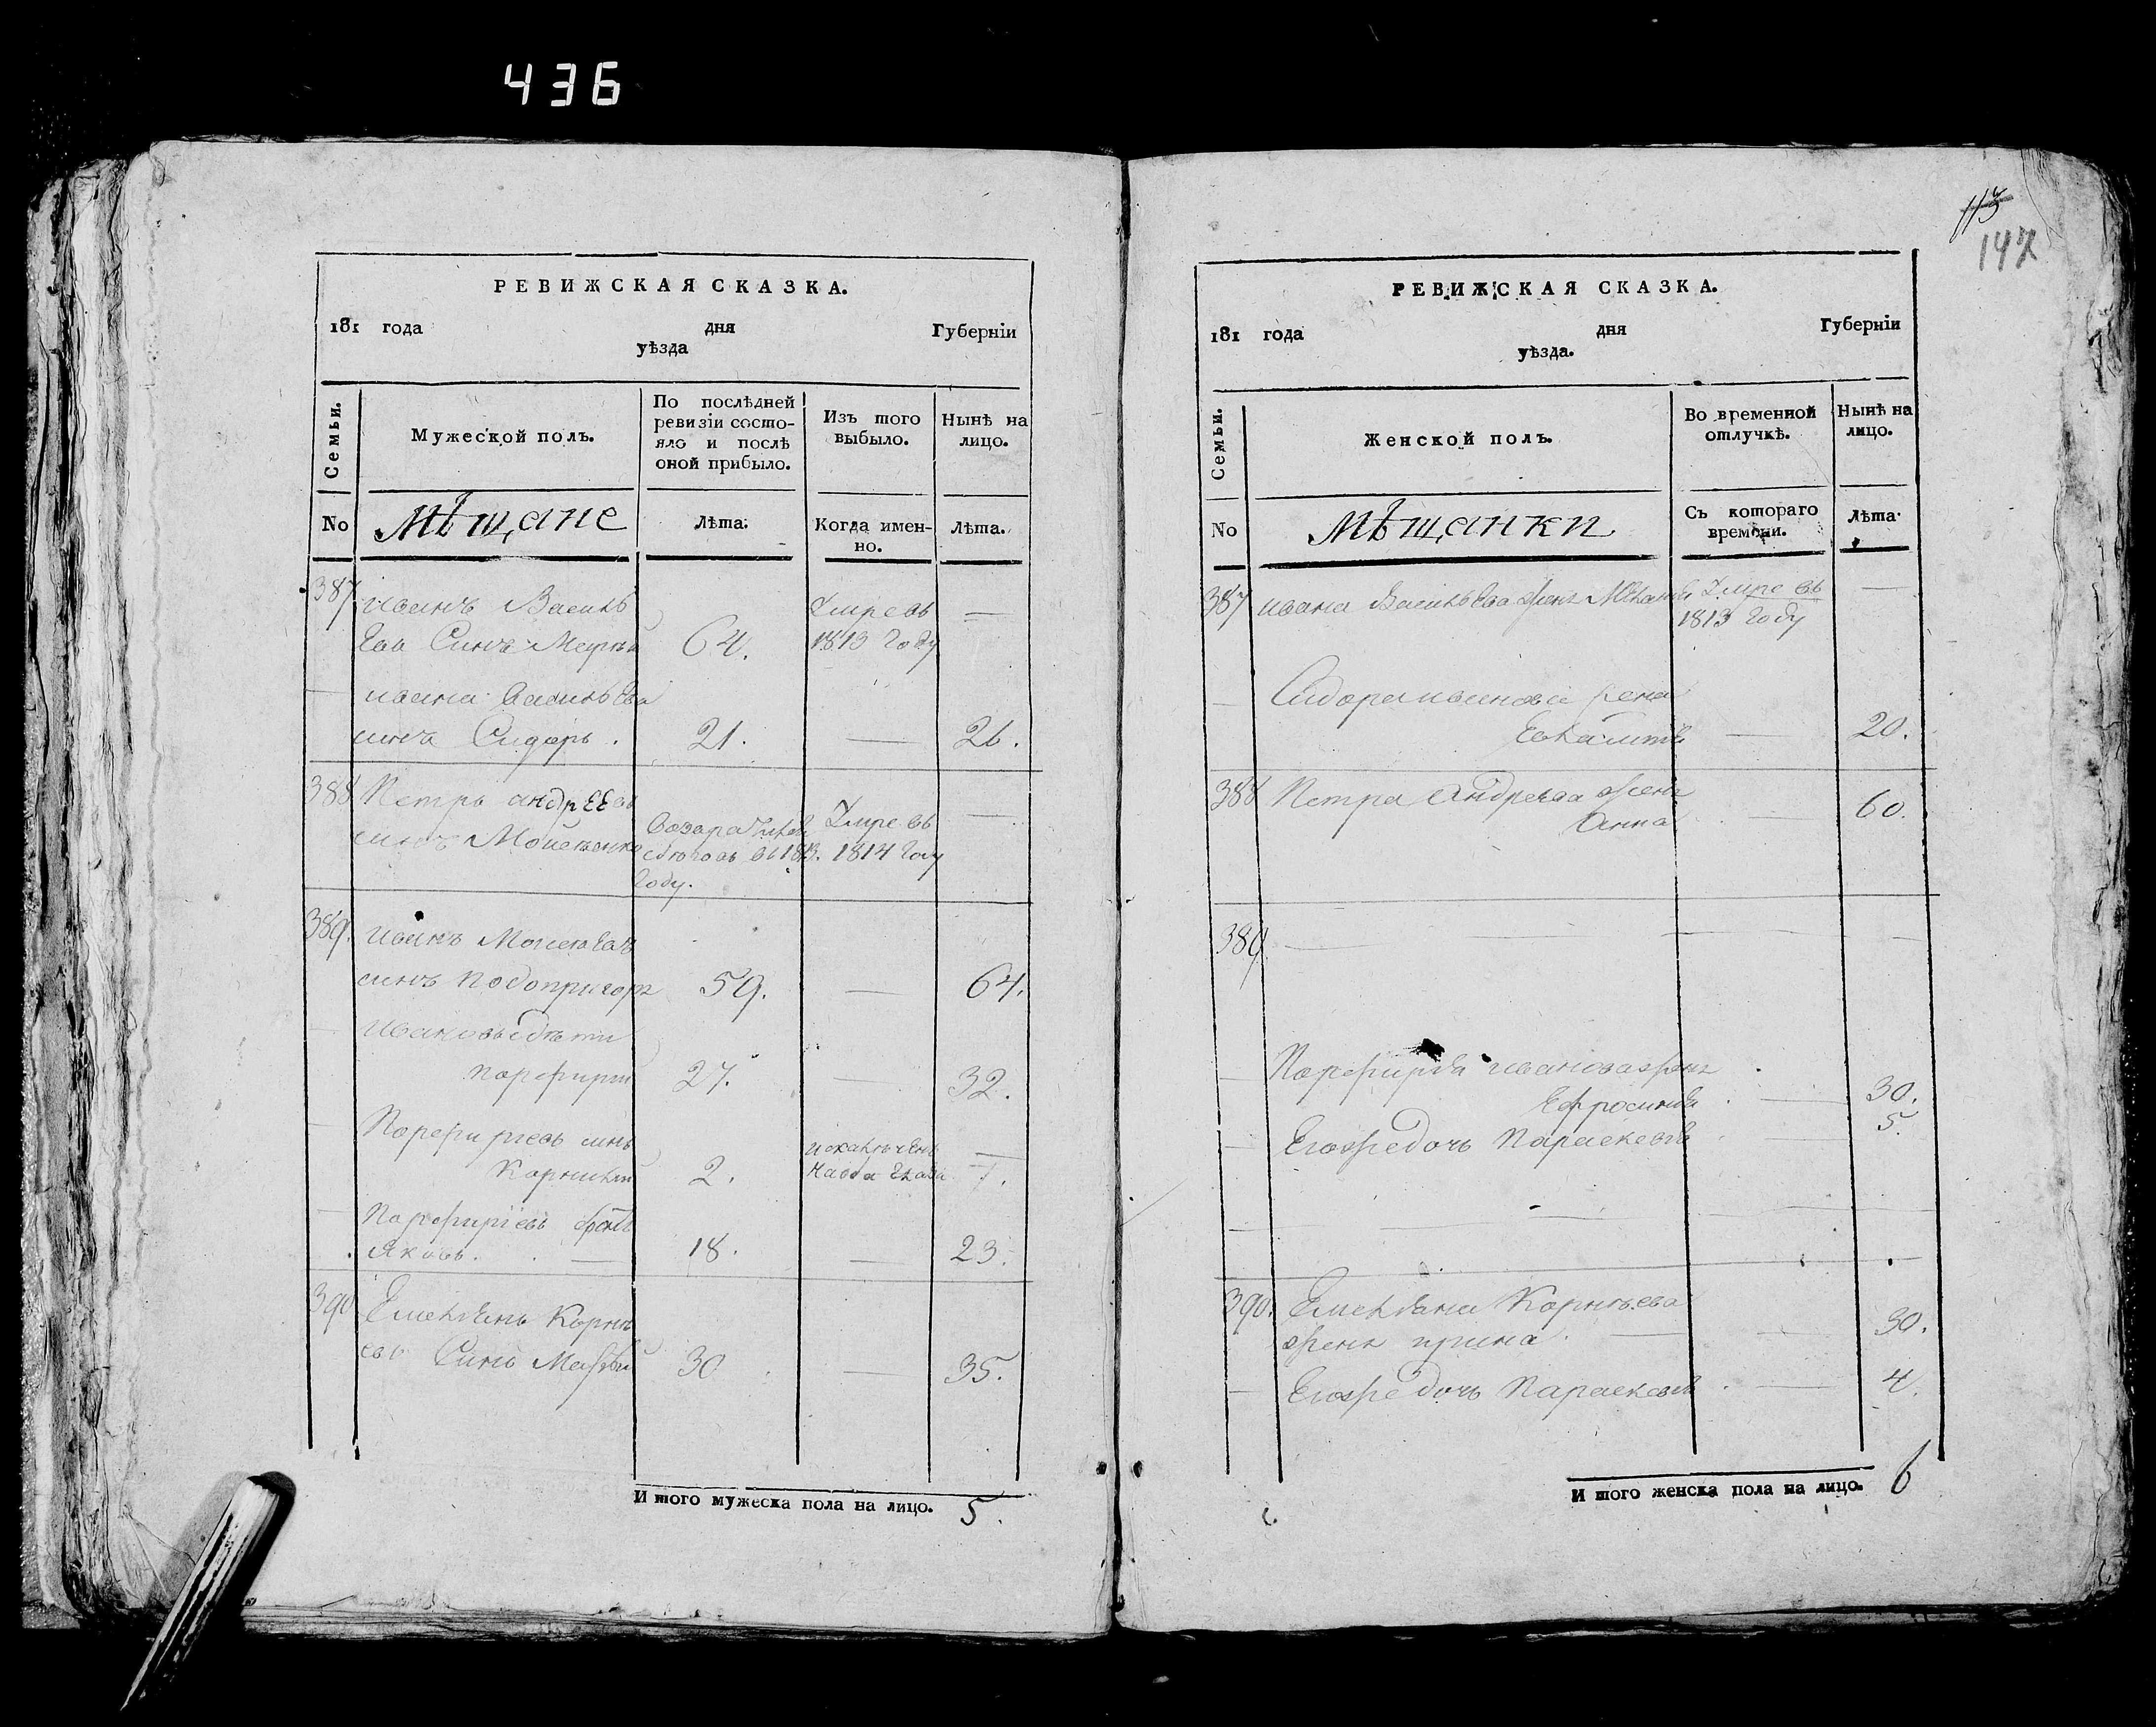 436
РЕВИЖСКАЯ СКАЗКА.
181 года дня Губерніи
уѣзда
Семьи.
Мужеской полъ.
По послѣдней ревизіи состо-
яло и послѣ
оной прибыло.
Изъ того
выбыло.
Нынѣ на
лицо.
No
Мѣщане
Лѣта.
Когда имен-
но.
Лѣта.
387 иванъ Василь
евъ Синъ 64.
Умре въ
1813 Году —
— ивана Васильева
синъ Сидоръ . 21. — 26.
388 Петръ андрЕЕвъ
синъ
въ 1813.
Году.
Умре въ
1814 Году —
389. иванъ
синъ Подопригора 59. — 64.
— ивановы дѣти
Порфирій 27. — 32.
— Порфиріевъ синъ
Корнилій 2. —
— Порфиріевъ братъ
Яковъ. — 18. — 23.
390 Емельянъ Корнѣ
евъ Синъ 30 — 35.
И того мужеска пола на лицо. 5.
113
147
РЕВИЖСКАЯ СКАЗКА.
181 года дня Губерніи
уѣзда.
Семьи.
Женской полъ.
Во временной
отлучкѣ.
Нынѣ на
лицо.
No
Мѣщанки
Съ котораго
времени.
Лѣта.
387 ивана Васильева жена Умре въ —
1813 Году
— Сидора иванова жена
20.
388 Петра Андреева жена
Анна — 60.
389. — — — —
— Порфирія иванова жена
Ефросинія — 30.
— Егожедочь Параскевія 5.
— — — —
390. Емельяна Корнѣева
жена ирина. — — 30.
— Егожедочь Параскевія — 4.
И того женска пола на лицо. 6